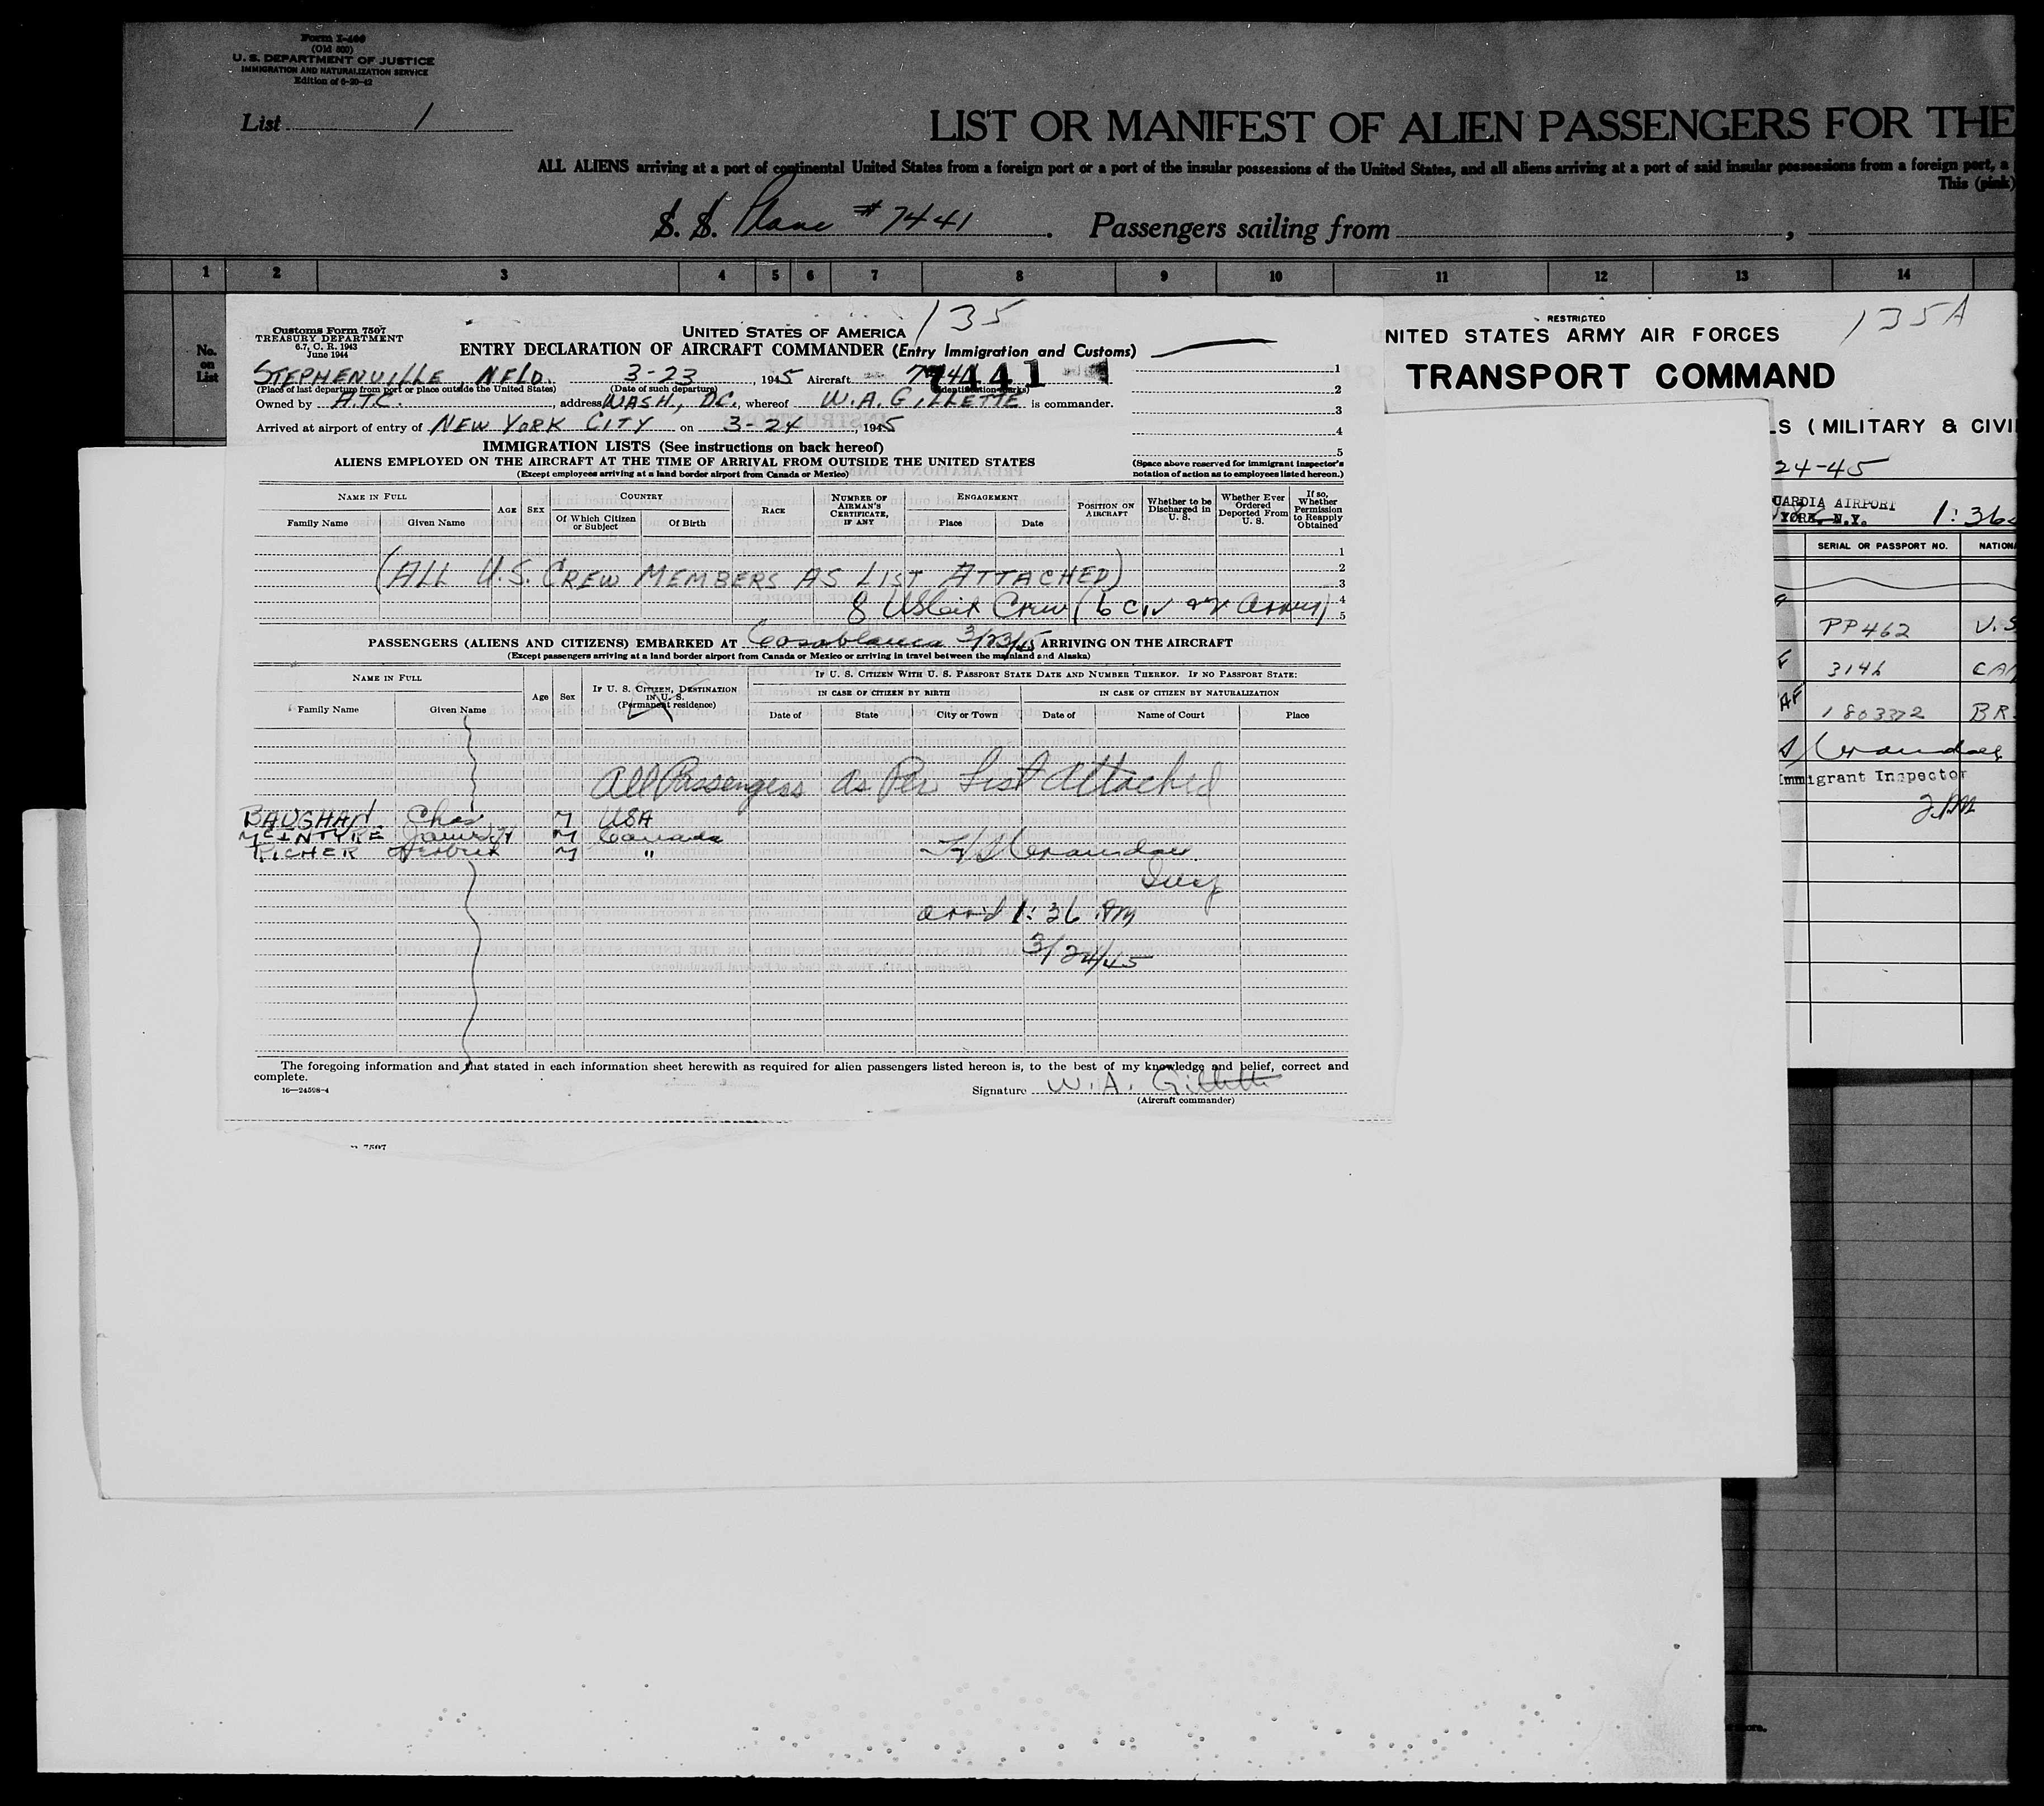 Form I-400
(Old 500)
U. S. DEPARTMENT OF JUSTICE
IMMIGRATION AND NATURALIZATION SERVICE
Edition of 6-20-42
List 1
LIST OR MANIFEST OF ALIEN PASSENGERS FOR THE
ALL ALIENS arriving at a port of continental United States from a foreign port or a port of the insular possessions of the United States, and all aliens arriving at a port of said insular possessions from a foreign port, a
This (pink)
S. S. Plane # 7441. Passengers sailing from ,
1 2 3 4 5 6 7 8 9 10 11 12 13 14
No. on List
Customs Form 7507
TREASURY DEPARTMENT
6.7, C. R. 1943
June 1944
UNITED STATES OF AMERICA
135
ENTRY DECLARATION OF AIRCRAFT COMMANDER (Entry Immigration and Customs)
STEPHENVILLE NFLD. 3-23, 1945 Aircraft 7441
(Place of last departure from port or place outside the United States) (Date of such departure) (Identification marks)
Owned by A.T.C., address WASH, DC., whereof W.A. GILLETTE is commander.
Arrived at airport of entry of NEW YORK CITY on 3-24, 1945
1
2
3
4
5
IMMIGRATION LISTS (See instructions on back hereof)
ALIENS EMPLOYED ON THE AIRCRAFT AT THE TIME OF ARRIVAL FROM OUTSIDE THE UNITED STATES
(Except employees arriving at a land border airport from Canada or Mexico)
(Space above reserved for immigrant inspector's notation of action as to employees listed hereon.)
NAME IN FULL
Family Name Given Name
AGE SEX
COUNTRY
Of Which Citizen or Subject Of Birth
RACE
NUMBER OF AIRMAN'S CERTIFICATE, IF ANY
ENGAGEMENT
Place Date
POSITION ON AIRCRAFT
Whether to be Discharged in U. S.
Whether Ever Ordered Deported From U. S.
If so, Whether Permission to Reapply Obtained
1
2
(ALL U.S. CREW MEMBERS AS LIST ATTACHED)
3
4
8 US Cit Crew (6 civ
5
PASSENGERS (ALIENS AND CITIZENS) EMBARKED AT Casablanca 3/23/45 ARRIVING ON THE AIRCRAFT
(Except passengers arriving at a land border airport from Canada or Mexico or arriving in travel between the mainland and Alaska)
NAME IN FULL
Family Name Given Name
Age Sex
IF U. S. CITIZEN, DESTINATION IN U. S.
(Permanent residence)
IF U. S. CITIZEN WITH U. S. PASSPORT STATE DATE AND NUMBER THEREOF. IF NO PASSPORT STATE:
IN CASE OF CITIZEN BY BIRTH IN CASE OF CITIZEN BY NATURALIZATION
Date of State City or Town Date of Name of Court Place
All Passengers as Per List Attached
BAUGHAN Chas M USA
McINTYRE James M Canada
RICHER M "
arr'd 1:36 PM
3/24/45
The foregoing information and that stated in each information sheet herewith as required for alien passengers listed hereon is, to the best of my knowledge and belief, correct and
complete.
16—24598-4
Signature W. A. Gillette
(Aircraft commander)
7507
RESTRICTED
135A
NITED STATES ARMY AIR FORCES
TRANSPORT COMMAND
LS (MILITARY & CIVI
24-45
UARDIA AIRPORT
YORK, N.Y. 1:36
SERIAL OR PASSPORT NO. NATION
PP462 U.S
3146 CAN
1803372 BR
Immigrant Inspector
more.